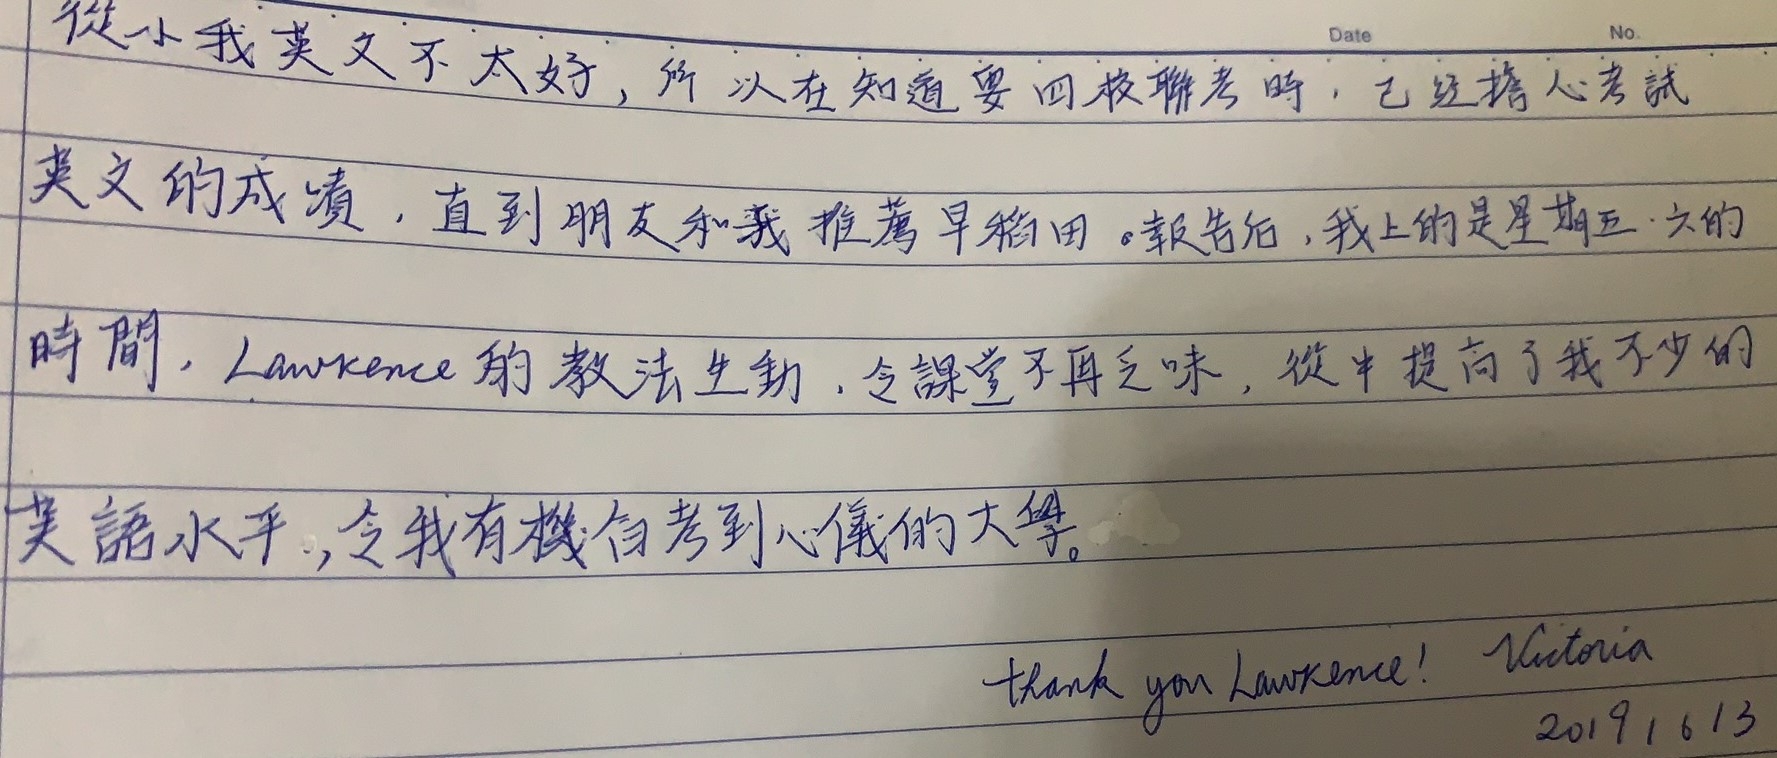 Date No.
從小我英文不太好，所以在知道要四校聯考時，已經擔心考試
英文的成績，直到朋友和我推薦早稻田。報告后，我上的是星期五．六的
時間，Lawrence 的教法生動，令課堂不再乏味，從中提高了我不少的
英語水平，令我有機會考到心儀的大學。
thank you Lawrence! Victoria
2019/6/3